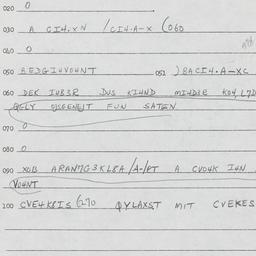 020 0
030 A CIH.XN /CIH-A-X (060
040 0
050 BEDGIHVOHNT 051 )BACIH-A-XC
060 DEK IHB3R DUS KIHND MIHD3R KOH, L7D
QELY OJSGENEJT FUN SATEN
070 0
080 0
090 XOB ARAN7G3KL8A /A-/PT A CVOHK IHN
VOHNT
100 CVEHK8IS (270 QYLAXST MIT CVEKES